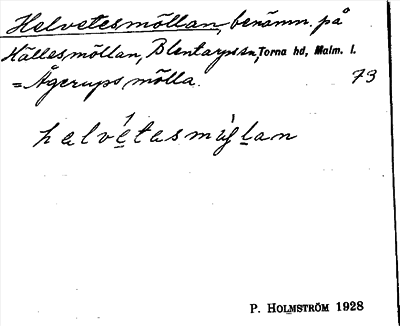 Helvetesmöllan, benämn. på
Hällesmöllan, Blentarps sn, Torna hd, Malm. l.
= Ågerups mölla. 73
helvetesmøjlan
P. HOLMSTRÖM 1928